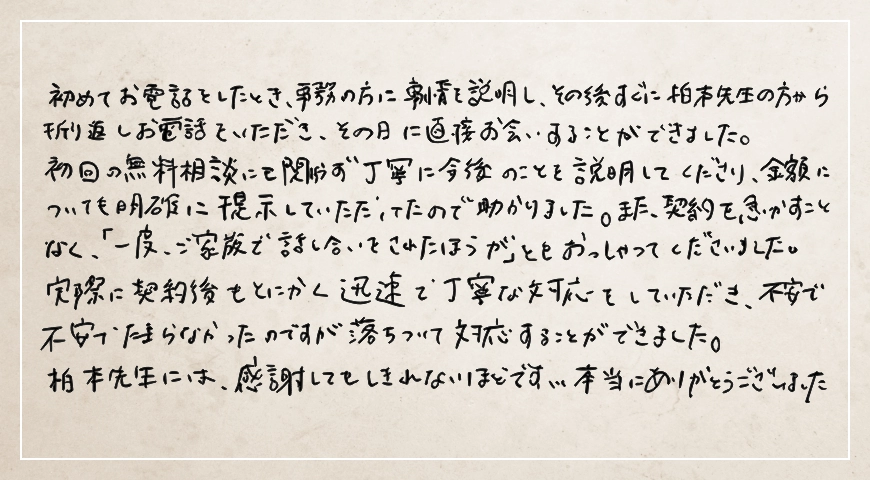 初めてお電話をしたとき、事務の方に事情を説明し、その後すぐに柏本先生の方から
折り返しお電話をいただき、その日に直接お会いすることができました。
初回の無料相談にも関わらず丁寧に今後のことを説明してくださり、金額に
ついても明確に提示していただいてたので助かりました。また、契約を急かすこと
なく、「一度、ご家族で話し合いをされたほうが」ともおっしゃってくださいました。
実際に契約後もとにかく迅速で丁寧な対応をしていただき、不安で
不安でたまらなかったのですが落ちついて対応することができました。
柏本先生には、感謝してもしきれないほどです… 本当にありがとうございました